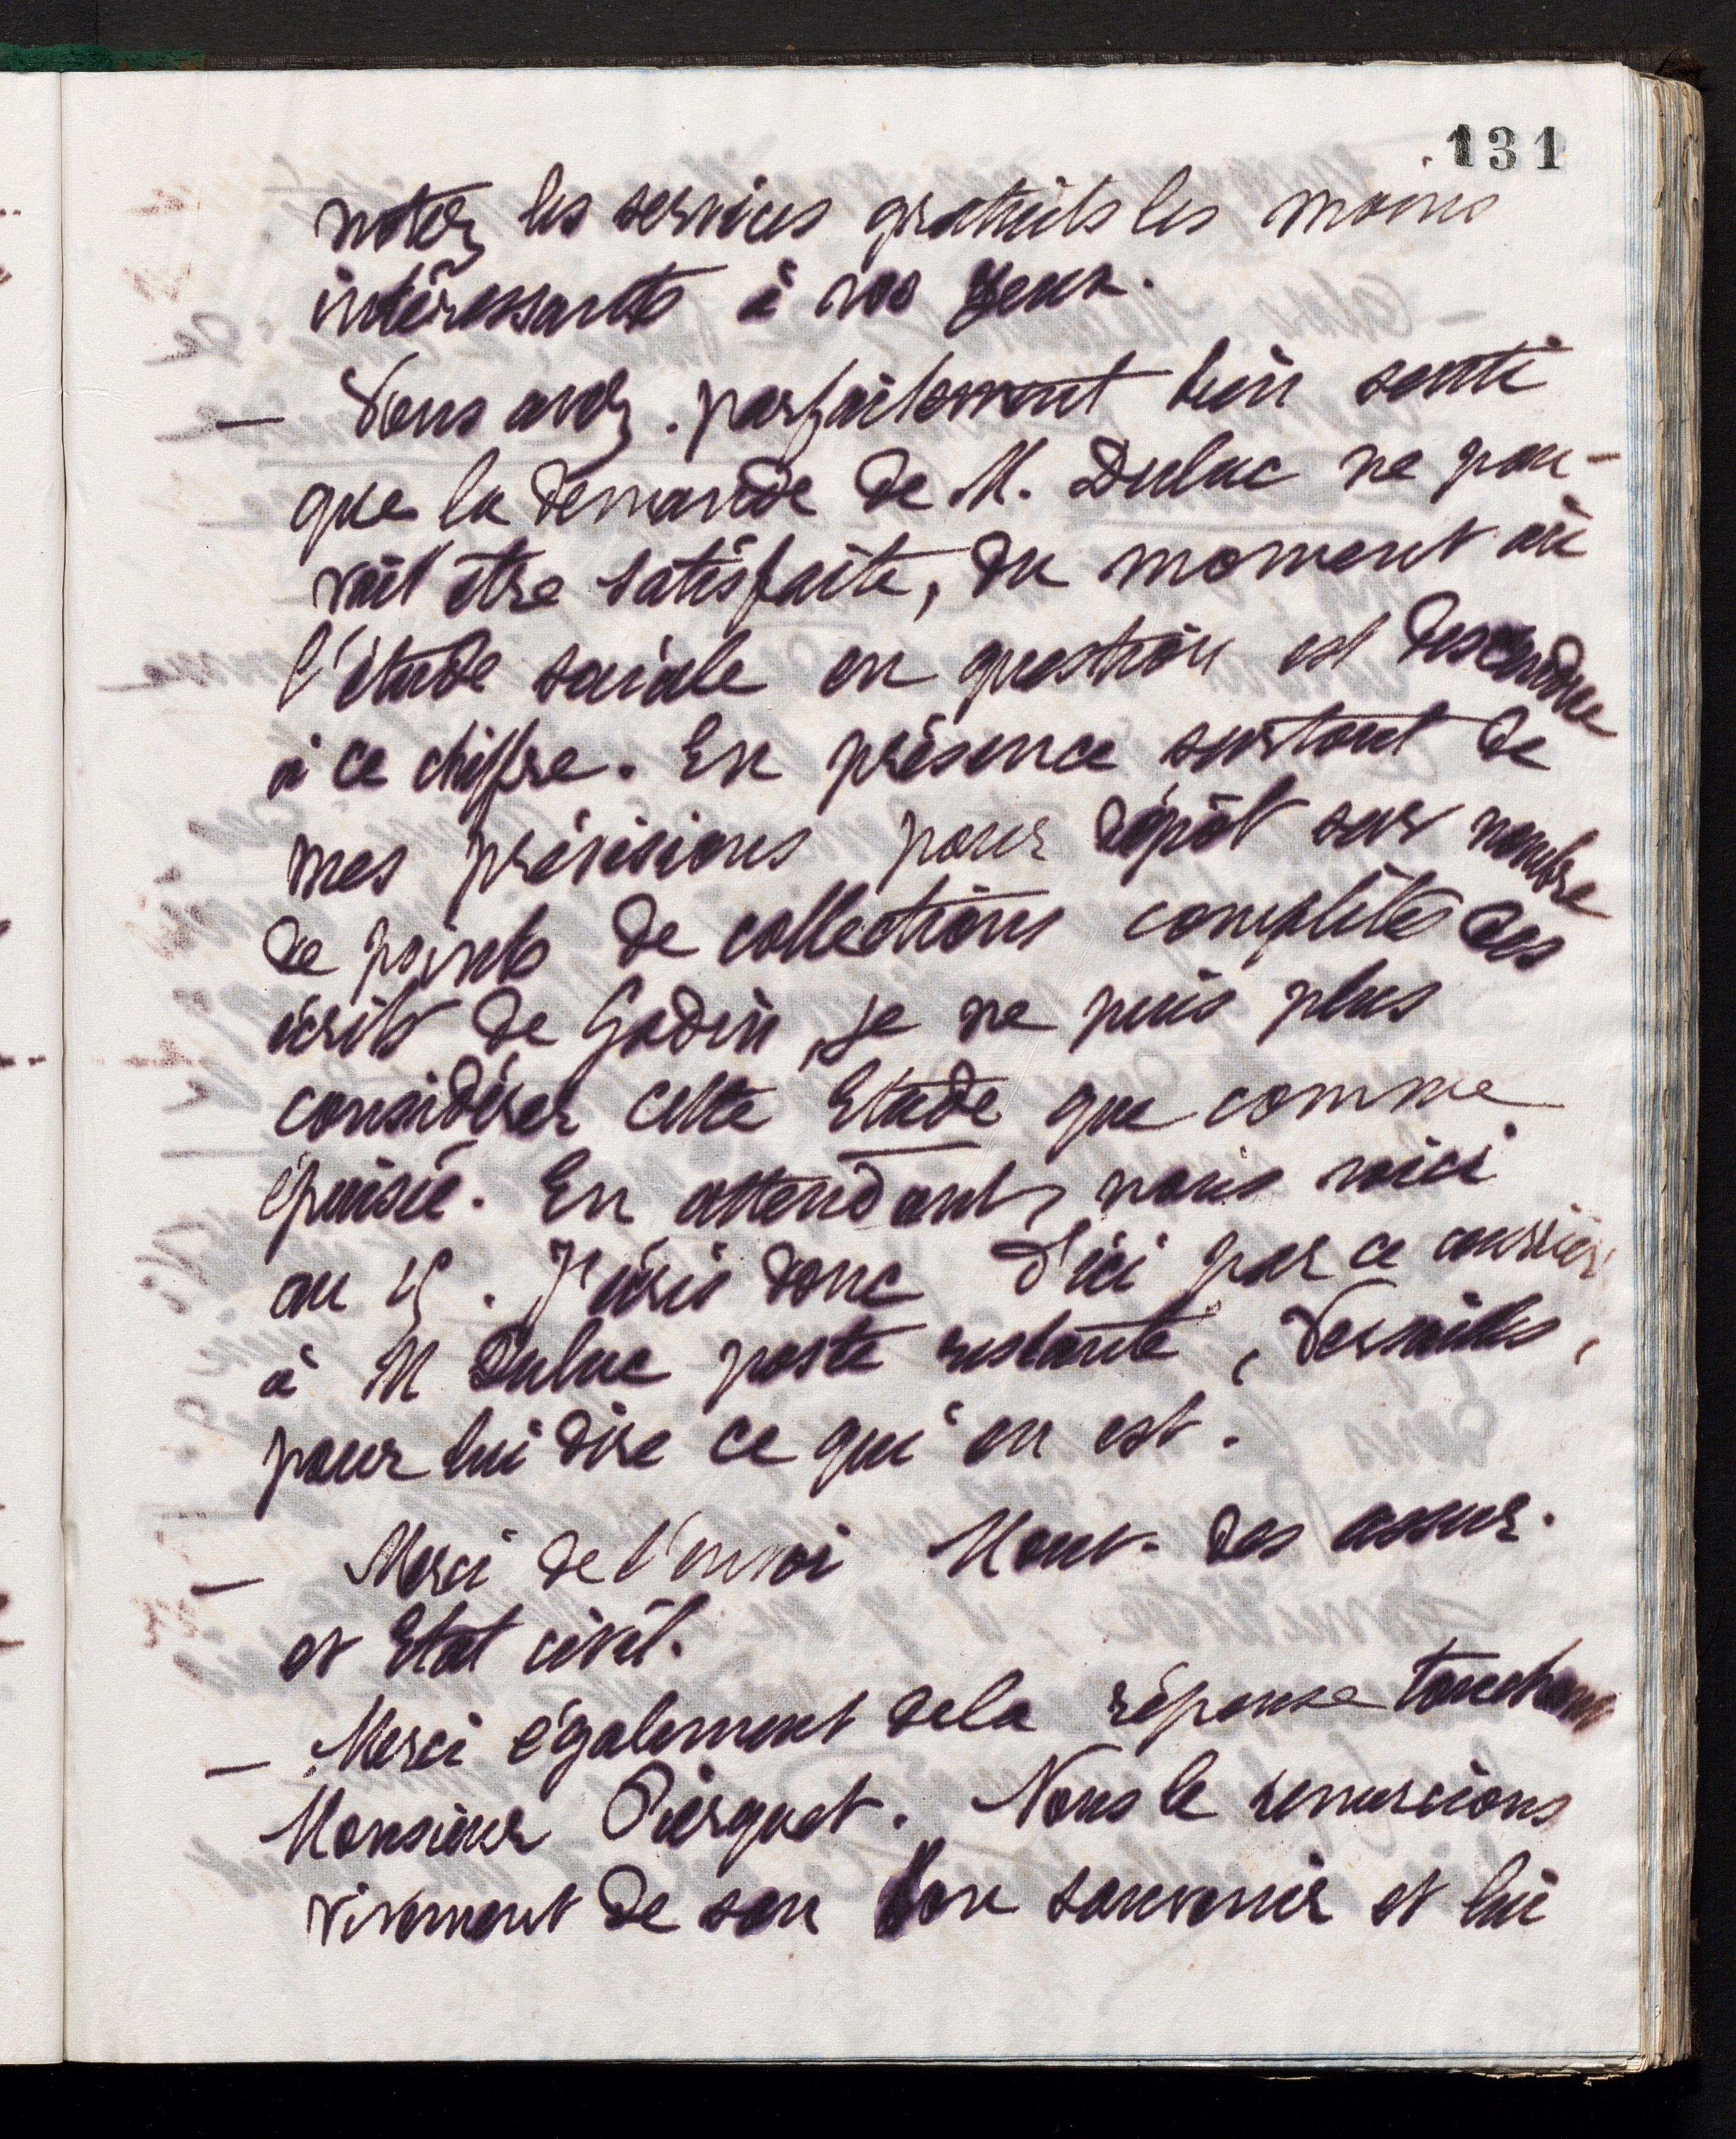 131
notez les services gratuits les moins
intéressants à vos yeux.
— Vous avez parfaitement bien senti
que la demande de M. Duluc ne pou-
vait être satisfaite, du moment où
l'étude sociale en question est descendue
à ce chiffre. En présence surtout de
mes prévisions pour dépôt sur nombre
de points de collections complètes des
écrits de Godin, je ne puis plus
considérer cette Etude que comme
épuisée. En attendant, nous voici
au 15. J'écris donc d'ici par ce courrier
à M Duluc poste restante, Versailles,
pour lui dire ce qu'en est.
— Merci de l'envoi Mont. des assur.
et Etat civil.
— Merci également de la réponse touchant
Monsieur Pierquet. Nous le remercions
vivement de son bon souvenir et lui